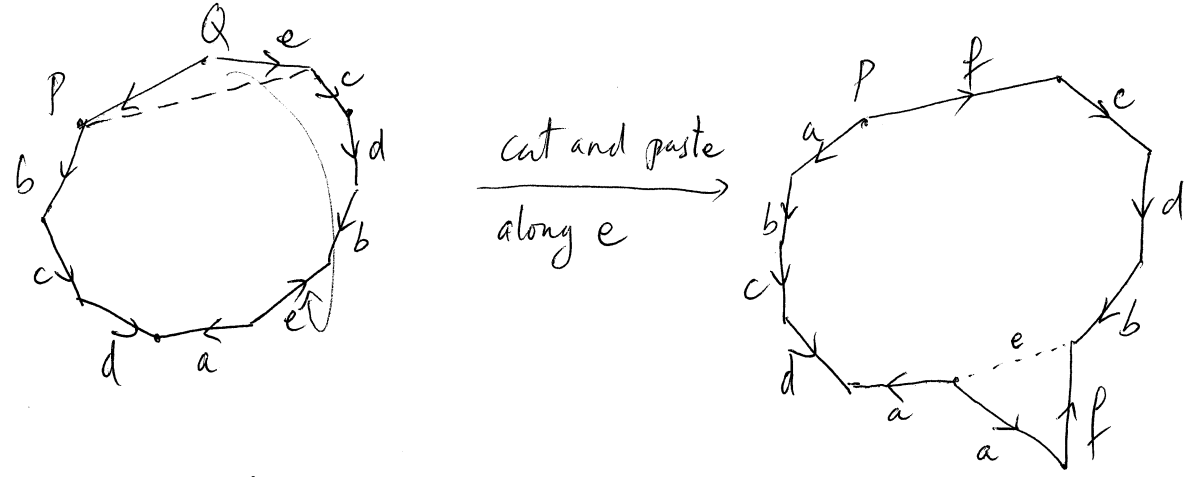 Q
e
P
c
b
d
c
b
d
a
e
cut and paste
along e
P
f
a
c
b
d
c
b
e
d
a
a
f